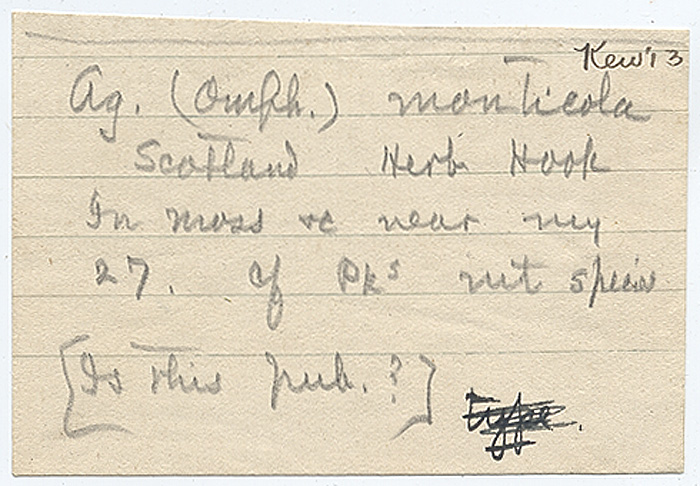 Kew'13
Ag. (Omph.) monticola
Scotland Herb Hook
In moss &c near my
27. Cf Pks nut
[Is this pub.?]
Type.